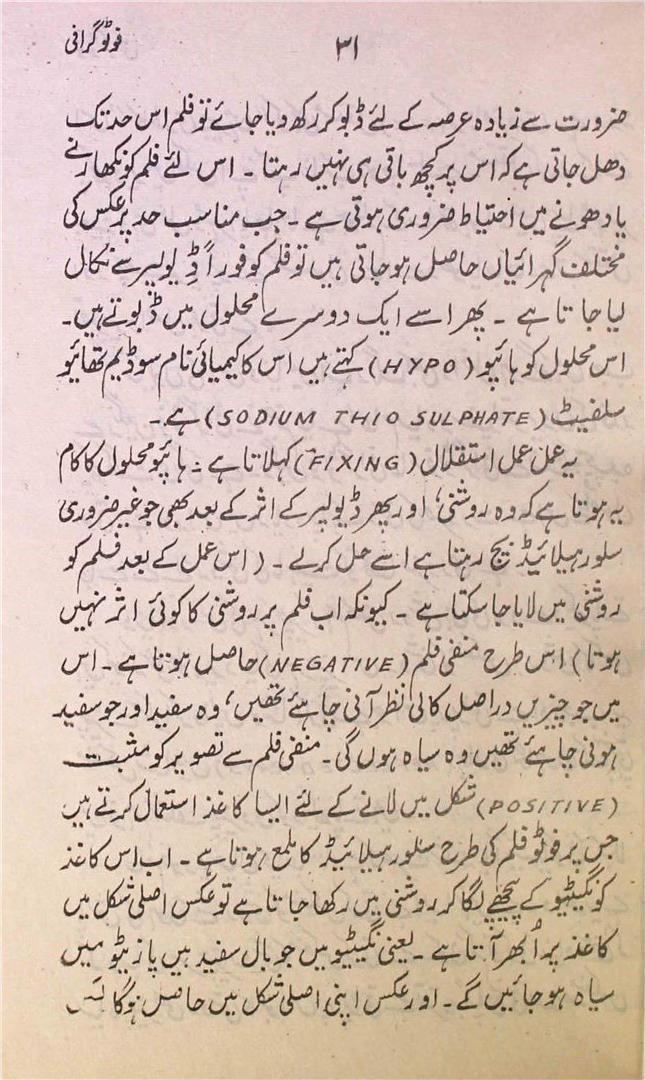 فوٹوگرافی
۳۱
ضرورت سے زیادہ عرصہ کے لئے ڈبو کر رکھ دیا جائے تو فلم اس حد تک
دھل جاتی ہے کہ اس پر کچھ باقی ہی نہیں رہتا ۔ اس لئے فلم کو نکھارنے
یا دھونے میں احتیاط ضروری ہوتی ہے ۔ جب مناسب حد پر عکس کی
مختلف گہرائیاں حاصل ہو جاتی ہیں تو فلم کو فوراً ڈیولپر سے نکال
لیا جاتا ہے ۔ پھر اسے ایک دوسرے محلول میں ڈبوتے ہیں۔
اس محلول کو ہائپو (HYPO) کہتے ہیں اس کا کیمیائی نام سوڈیم تھائیو
سلفیٹ (SODIUM THIO SULPHATE) ہے ۔
یہ عمل عمل استقلال (FIXING) کہلاتا ہے ۔ ہائپو محلول کا کام
یہ ہوتا ہے کہ وہ روشنی، اور پھر ڈیولپر کے اثر کے بعد بھی جو غیر ضروری
سلور ہیلائیڈ بچ رہتا ہے اسے حل کرلے ۔ (اس عمل کے بعد فلم کو
روشنی میں لایا جا سکتا ہے ۔ کیونکہ اب فلم پر روشنی کا کوئی اثر نہیں
ہوتا) اس طرح منفی فلم (NEGATIVE) حاصل ہوتا ہے ۔ اس
میں جو چیزیں دراصل کالی نظر آنی چاہئے تھیں، وہ سفید اور جو سفید
ہونی چاہئے تھیں وہ سیاہ ہوں گی ۔ منفی فلم سے تصویر کو مثبت
(POSITIVE) شکل میں لانے کے لئے ایسا کاغذ استعمال کرتے ہیں
جس پر فوٹو فلم کی طرح سلور ہیلائیڈ کا ملمع ہوتا ہے ۔ اب اس کاغذ
کو نگیٹیو کے پیچھے لگا کر روشنی میں رکھا جاتا ہے تو عکس اصلی شکل میں
کاغذ پر اُبھر آتا ہے ۔ یعنی نگیٹیو میں جو بال سفید ہیں پازیٹو میں
سیاہ ہو جائیں گے ۔ اور عکس اپنی اصلی شکل میں حاصل ہوگا